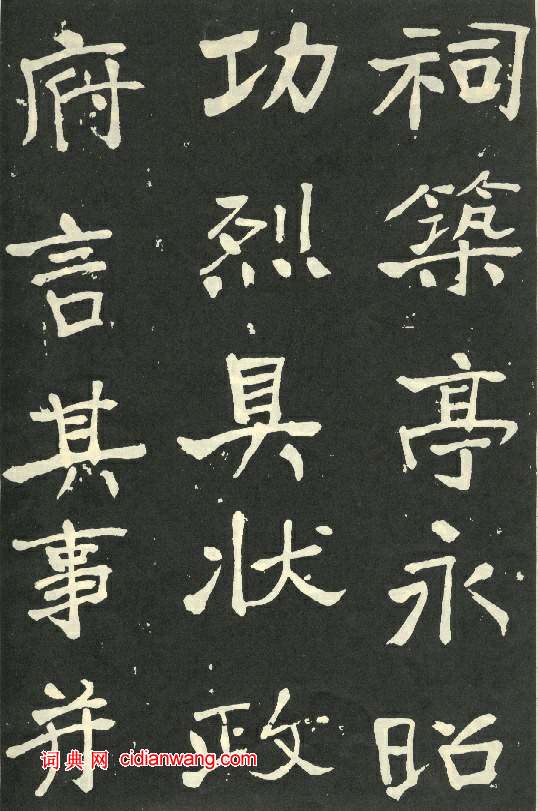 祠築亭永昭
功烈具状政
府言其事并
词典网 cidianwang.com